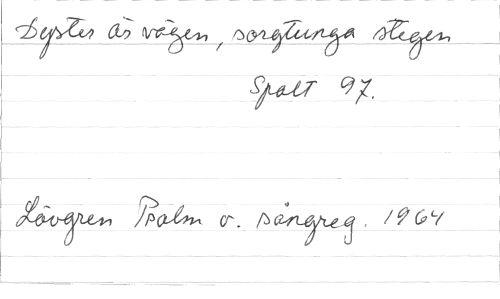 Dyster är vägen, sorgtunga stegen
Spalt 97.
Lövgren Psalm o. sångreg. 1964